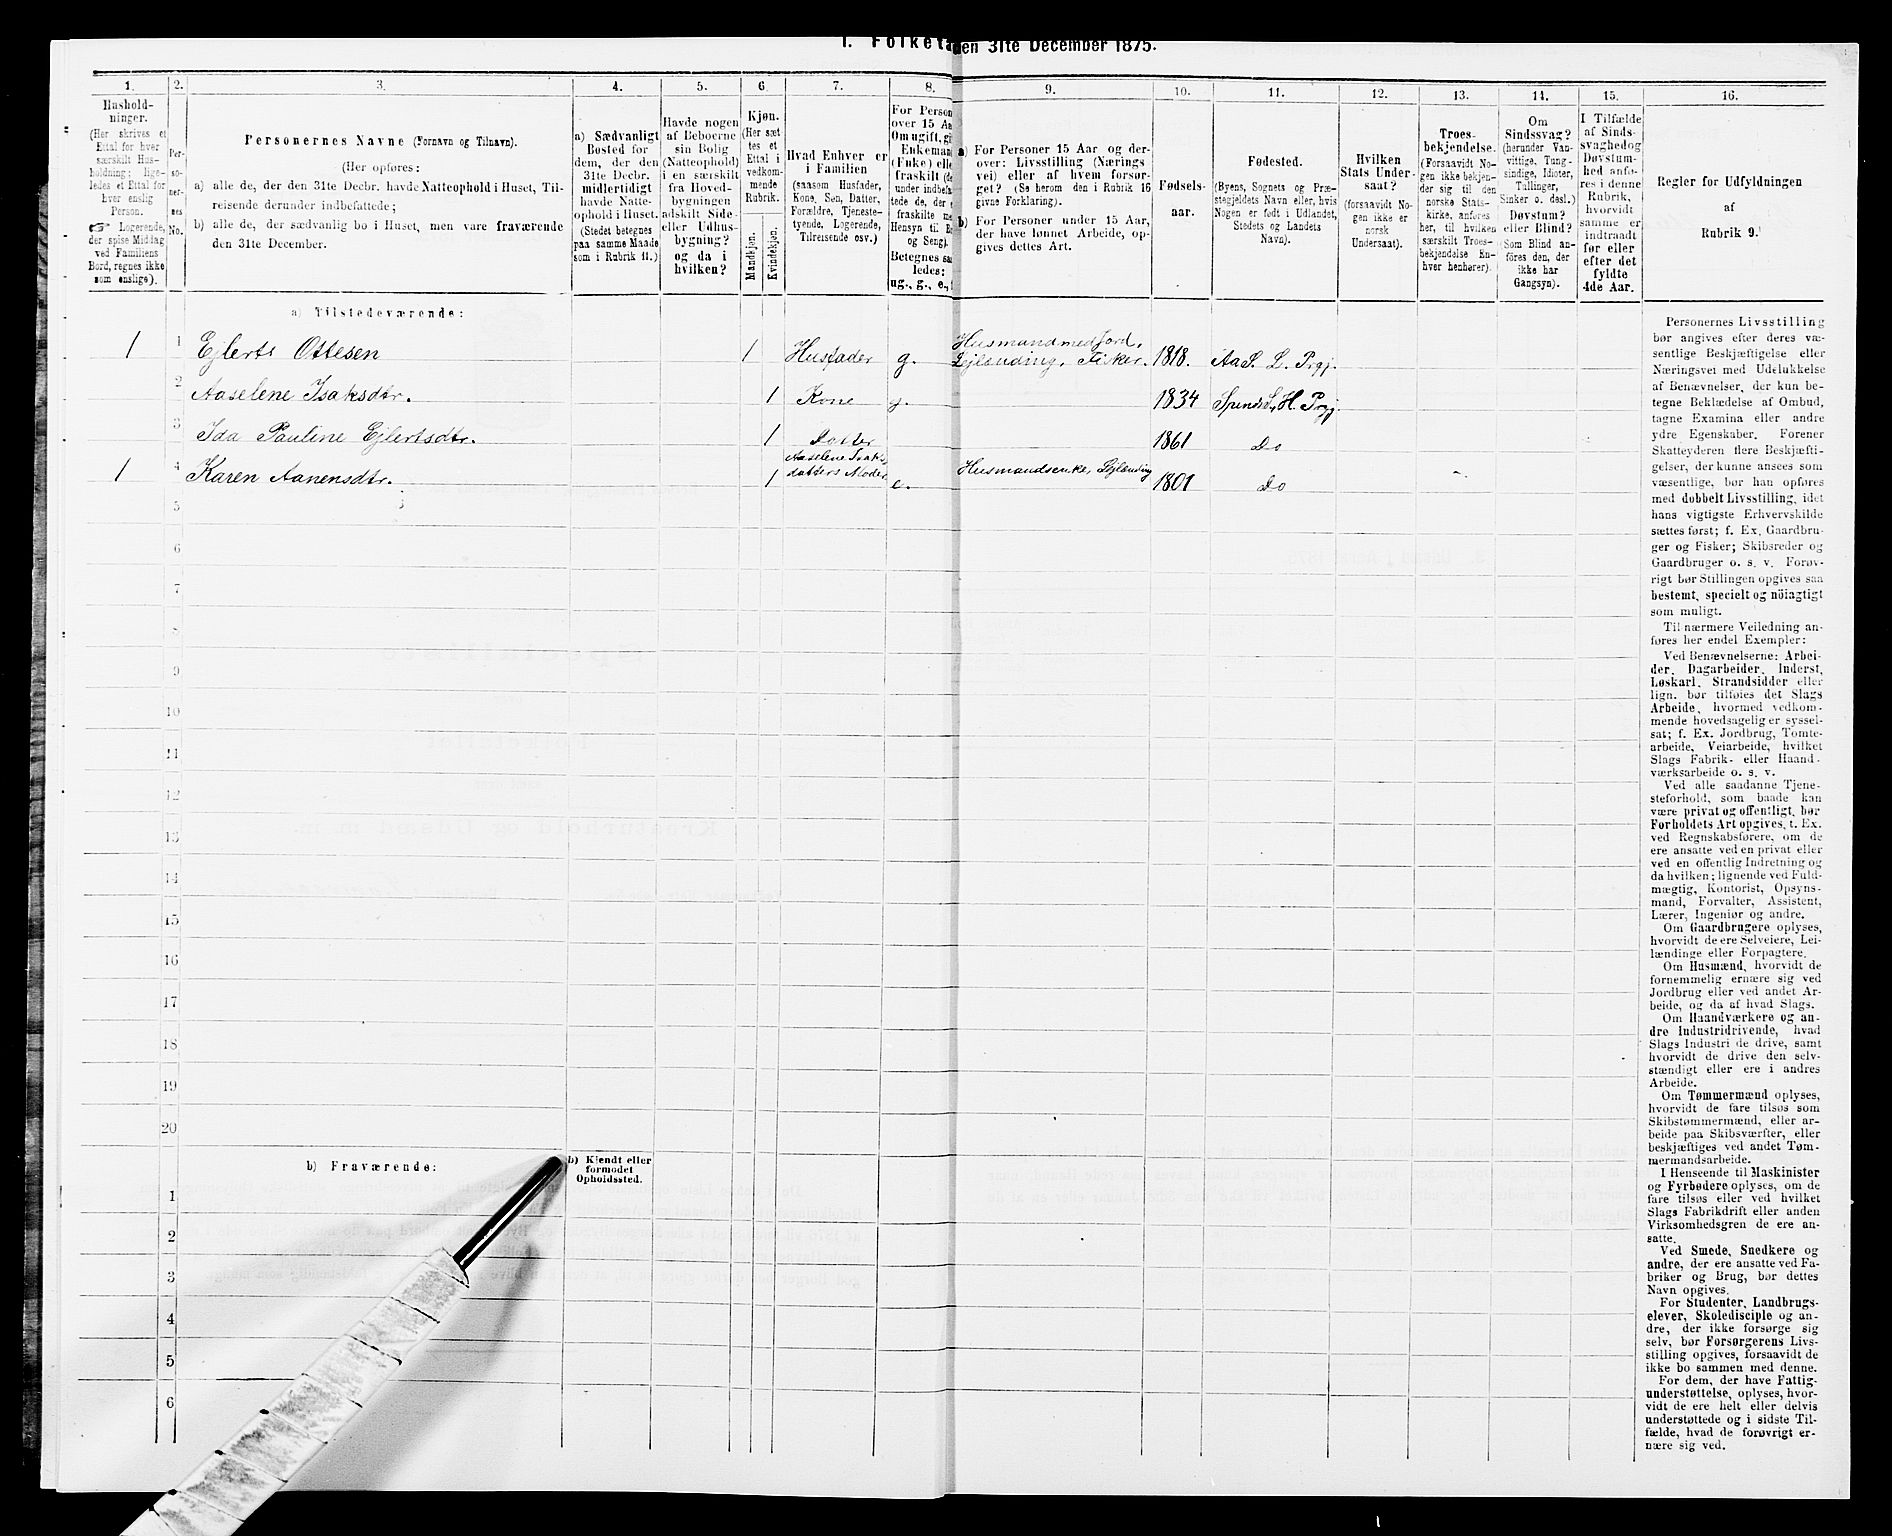 I. Folketæ
den 31te December 1875.
1.
Hushold-
ninger.
(Her skrives et
Ettal for hver
særskilt Hus-
holdning; lige-
ledes et Ettal for
hver enslig
Person.
☞ Logerende,
der spise Middag
ved Familiens
Bord, regnes ikke
som enslige).
2.
Per-
so-
ner-
nes
No.
3.
Personernes Navne (Fornavn og Tilnavn).
(Her opføres:
a) alle de, der den 31te Decbr. havde Natteophold i Huset, Til-
reisende derunder indbefattede;
b) alle de, der sædvanlig bo i Huset, men vare fraværende
den 31te December.
4.
a) Sædvanligt
Bosted for
dem, der den
31te Decbr.
midlertidigt
havde Natte-
ophold i Huset.
(Stedet betegnes
paa samme Maade
som i Rubrik 11.)
5.
Havde nogen
af Beboerne
sin Bolig
(Natteophold)
i en særskilt
fra Hoved-
bygningen
adskilt Side-
eller Udhus-
bygning?
og da i
hvilken?
6.
Kjøn.
(Her sæt
tes et
Ettal i
vedkom-
mende
Rubrik.
Mandkjøn.
Kvindekjøn.
7.
Hvad Enhver er
i Familien
(saasom Husfader,
Kone, Søn, Datter,
Forældre, Tjeneste-
tyende, Logerende,
Tilreisende osv.)
8.
For Person
over 15 Aa
Om ugift, gi
Enkeman
(Enke) elle
fraskilt (de
under indbefa
tede de, der e
fraskilte me
Hensyn til Bo
og Seng).
Betegnes saa
ledes:
ug., g., e.,
9.
a) For Personer 15 Aar og der-
over: Livsstilling (Nærings
vei) eller af hvem forsør-
get? (Se herom den i Rubrik 16
givne Forklaring).
b) For Personer under 15 Aar,
der have lønnet Arbeide, op-
gives dettes Art.
10.
Fødsels-
aar.
11.
Fødested.
(Byens, Sognets og Præ-
stegjeldets Navn eller, hvis
Nogen er født i Udlandet,
Stedets og Landets
Navn).
12.
Hvilken
Stats Under-
saat?
(forsaavidt No-
gen ikke er
norsk
Undersaat).
13.
Troes-
bekjendelse.
(Forsaavidt No-
gen ikke bekjen-
der sig til den
norske Stats-
kirke, anføres
her, til hvilken
særskilt Troes-
bekjendelse En-
hver henhører).
14.
Om
Sindssvag?
(herunder Van-
vittige, Tung-
sindige, Idioter,
Tullinger,
Sinker o. desl.)
Døvstum?
eller Blind?
(Som Blind an-
føres den, der
ikke har
Gangsyn).
15.
I Tilfælde
af Sinds-
svaghed og
Døvstum-
hed anfø-
res i denne
Rubrik,
hvorvidt
samme er
indtraadt
før eller
efter det
fyldte
4de Aar.
16.
Regler for Udfyldningen
af
Rubrik 9.
a) Tilstedeværende:
1 1 Ejlerts Ottesen 1 Husfader g. Husmand med Jord, Lejlænding, Fisker. 1818. Aa S. L. Prgj.
2 Aaselene Isaksdtr. 1 Kone g. 1834 Spinds S., H. Prgj.
3 Ida Pauline Ejlertsdtr. 1 Datter 1861 Do
1 4 Karen Aanensdtr. 1 Aaselene Isaks-
datters Moder e. Husmandsenke, Lejlænding 1801 Do
5
6
7
8
9
10
11
12
13
14
15
16
17
18
19
20
b) Fraværende:
b) Kjendt eller
formodet
Opholdssted.
1
2
3
4
5
6
Personernes Livsstilling
bør angives efter deres væ-
sentlige Beskjæftigelse eller
Næringsvei med Udelukkelse
af Benævnelser, der kun be-
tegne Beklædelse af Ombud,
tagne Examina eller andre
ydre Egenskaber. Forener
Skatteyderen flere Beskjæfti-
gelser, der kunne ansees som
væsentlige, bør han opføres
med dobbelt Livsstilling, idet
hans vigtigste Erhvervskilde
sættes først; f. Ex. Gaardbru-
ger og Fisker; Skibsreder og
Gaardbruger o. s. v. Forøv-
rigt bør Stillingen opgives saa
bestemt, specielt og nöiagtigt
som muligt.
Til nærmere Veiledning an-
føres her endel Exempler:
Ved Benævnelserne: Arbei-
der, Dagarbeider, Inderst,
Løskarl, Strandsidder eller
lign. bør tilføies det Slags
Arbeide, hvormed vedkom-
mende hovedsagelig er syssel-
sat; f. Ex. Jordbrug, Tomte-
arbeide, Veiarbeide, hvilket
Slags Fabrik- eller Haand-
værksarbeide o. s. v.
Ved alle saadanne Tjene-
steforhold, som baade kan
være privat og offentligt, bør
Forholdets Art opgives, t. Ex.
ved Regnskabsførere, om de
ere ansatte ved en privat eller
ved en offentlig Indretning og
da hvilken; lignende ved Fuld-
mægtig, Kontorist, Opsyns-
mand, Forvalter, Assistent,
Lærer, Ingeniør og andre.
Om Gaardbrugere oplyses,
hvorvidt de ere Selveiere, Lei-
lændinge eller Forpagtere.
Om Husmænd, hvorvidt de
fornemmelig ernære sig ved
Jordbrug eller ved andet Ar-
beide, og da af hvad Slags.
Om Haandværkere og an-
dre Industridrivende, hvad
Slags Industri de drive, samt
hvorvidt de drive den selv-
stændigt eller ere i andres
Arbeide.
Om Tømmermænd oplyses,
hvorvidt de fare tilsøs som
Skibstømmermænd, eller ar-
beide paa Skibsværfter, eller
beskjæftiges ved andet Tøm-
mermandsarbeide.
I Henseende til Maskinister
og Fyrbødere oplyses, om de
fare tilsøs eller ved hvilket
Slags Fabrikdrift eller anden
Virksomhedsgren de ere an-
satte.
Ved Smede, Snedkere og
andre, der ere ansatte ved Fa-
briker og Brug, bør dettes
Navn opgives.
For Studenter, Landbrugs-
elever, Skoledisciple og an-
dre, der ikke forsørge sig
selv, bør Forsørgerens Livs-
stilling opgives, forsaavidt de
ikke bo sammen med denne.
For dem, der have Fattig-
understøttelse, oplyses, hvor-
vidt de ere helt eller delvis
understøttede og i sidste Til-
fælde, hvad de forøvrigt er-
nære sig ved.